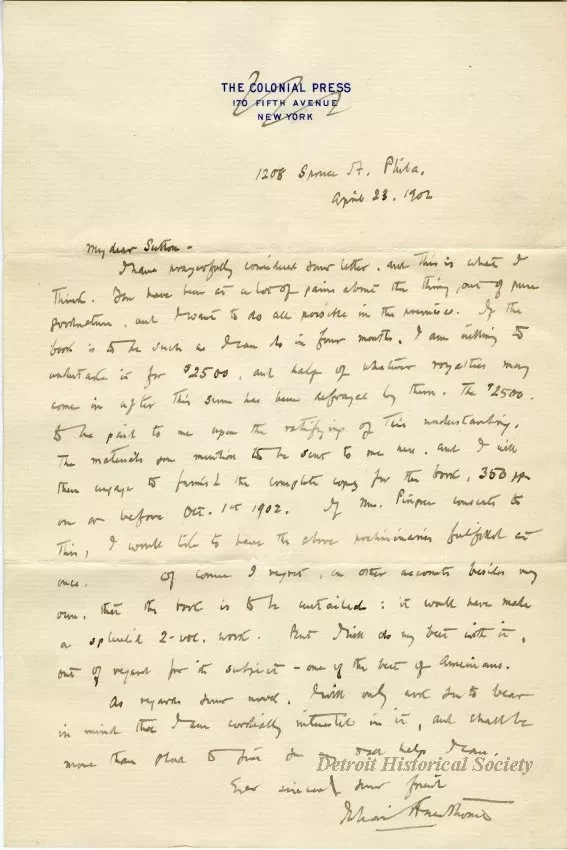 THE COLONIAL PRESS
170 FIFTH AVENUE
NEW YORK
1208 Spruce St. Phila.
April 23. 1902
My dear Sutton -
I have prayerfully considered your letter, and this is what I
think. You have been at a lot of pains about the thing, out of pure
goodnature, and I want to do all possible in the premises. If the
book is to be such as I can do in four months, I am willing to
undertake it for $2500, and half of whatever royalties may
come in after this sum has been defrayed by them. The $2500.
to be paid to me upon the ratifying of this understanding.
The materials you mention to be sent to me here, and I will
then engage to furnish the complete copy for the book, 350 pp
on or before Oct. 1st 1902. If Mrs. Pingree consents to
this, I would like to have the above preliminaries fulfilled at
once. Of course I regret, on other accounts besides my
own, that the book is to be curtailed: it would have made
a splendid 2-vol. work. But I will do my best with it,
out of regard for its subject - one of the best of Americans.
As regards your novel, I will only ask you to bear
in mind that I am cordially interested in it, and shall be
more than glad to give you any help I can.
Ever sincerely your friend
Julian Hawthorne
Detroit Historical Society